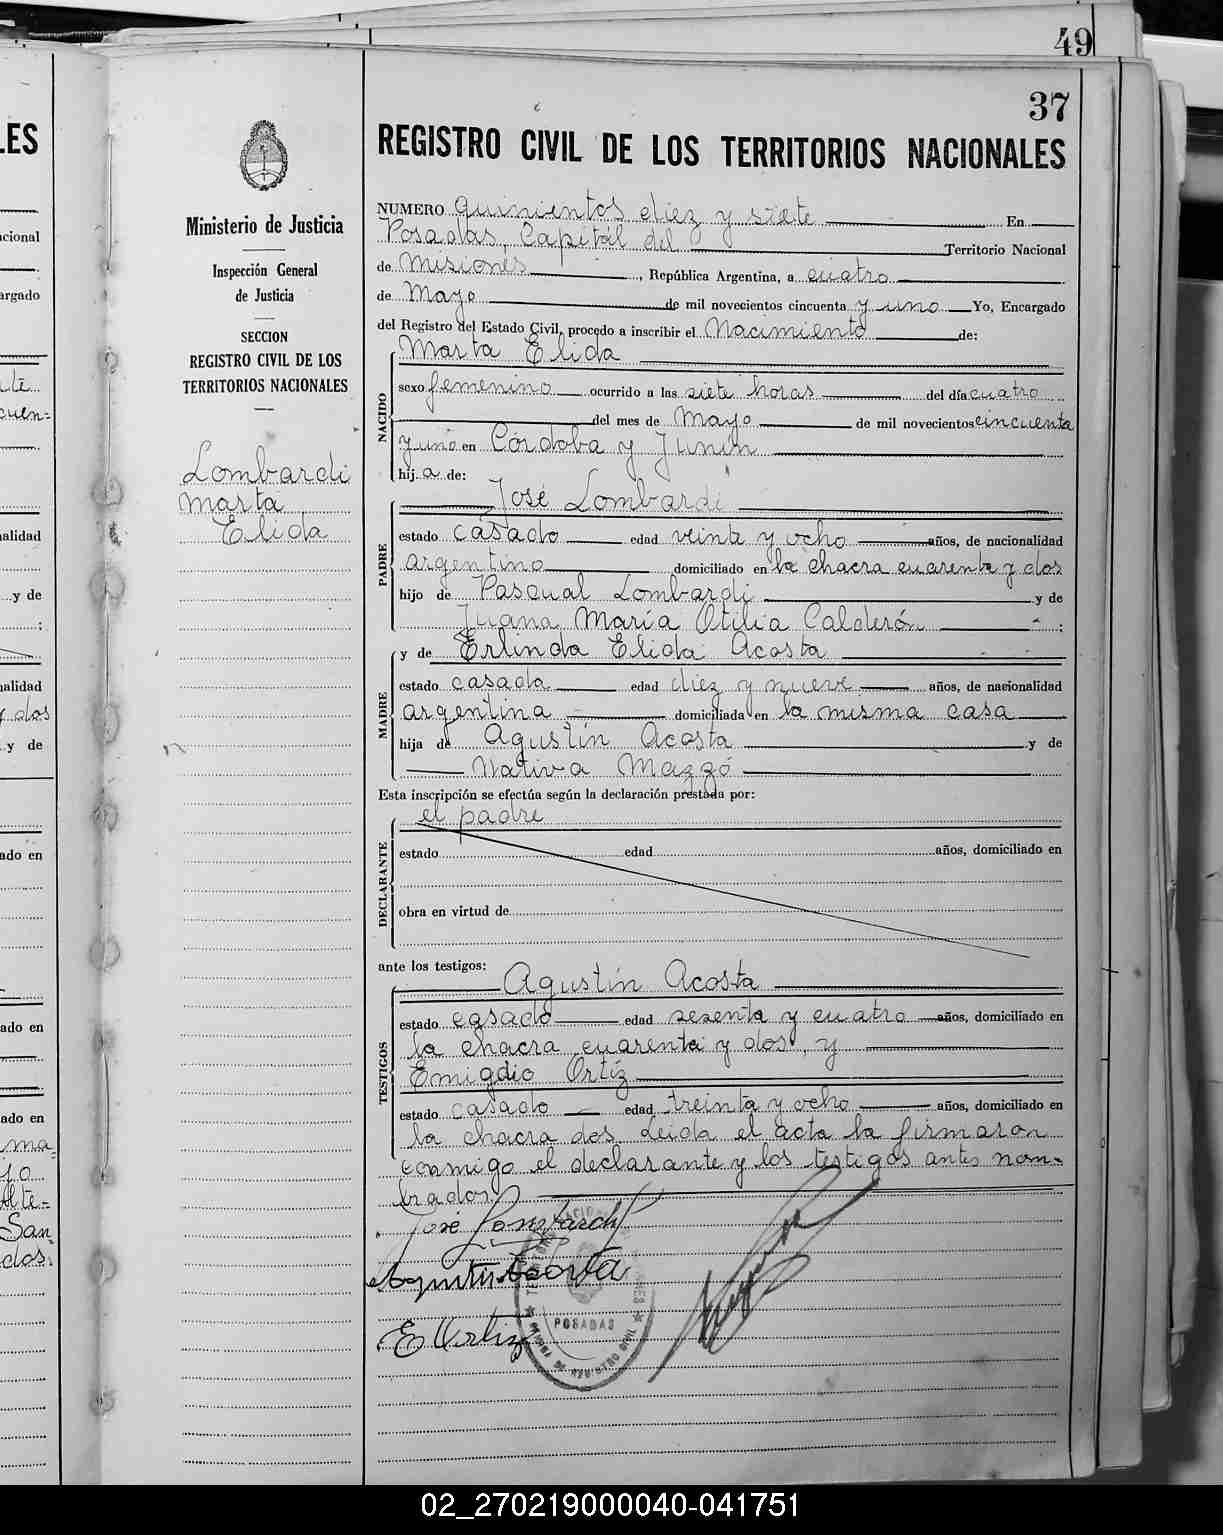 49
37
LES
REGISTRO CIVIL DE LOS TERRITORIOS NACIONALES
Ministerio de Justicia
Inspección General
de Justicia
SECCION
REGISTRO CIVIL DE LOS
TERRITORIOS NACIONALES
Lombardi
Marta
Elida
NUMERO quinientos diez y siete En
Posadas, Capital del Territorio Nacional
de Misiones, República Argentina, a cuatro
de Mayo de mil novecientos cincuenta y uno Yo, Encargado
del Registro del Estado Civil, procedo a inscribir el Nacimiento de:
NACIDO
Marta Elida
sexo femenino ocurrido a las siete horas del día cuatro
del mes de Mayo de mil novecientos cincuenta
y uno en Córdoba y Junín
hija de:
PADRE
José Lombardi
estado casado edad veinte y ocho años, de nacionalidad
argentino domiciliado en la chacra cuarenta y dos
hijo de Pascual Lombardi y de
Juana María Otilia Calderón :
MADRE
y de Erlinda Elida Acosta
estado casada edad diez y nueve años, de nacionalidad
argentina domiciliada en la misma casa
hija de Agustín Acosta y de
Nativa Mazzó
Esta inscripción se efectúa según la declaración prestada por:
DECLARANTE
el padre
estado edad años, domiciliado en
obra en virtud de
ante los testigos:
TESTIGOS
Agustín Acosta
estado casado edad sesenta y cuatro años, domiciliado en
la chacra cuarenta y dos, y
Emigdio Ortíz
estado casado edad treinta y ocho años, domiciliado en
la chacra dos. Leida el acta la firmaron
conmigo el declarante y los testigos antes nom-
brados.
José Lombardi
Agustin Acosta
E Ortiz
POSADAS
02_270219000040-041751